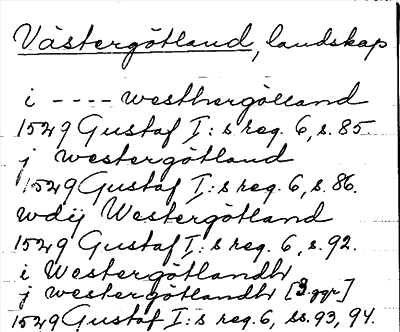 Västergötland, landskap
i ---- westhergötland
1529 Gustaf I:s reg. 6, s. 85
j westergötland
1529 Gustaf I:s reg. 6, s. 86.
wdij Westergötland
1529 Gustaf I:s reg. 6, s. 92.
i Westergötlandh
j westergötlandh [3 ggr]
1529 Gustaf I:s reg. 6, ss. 93, 94.